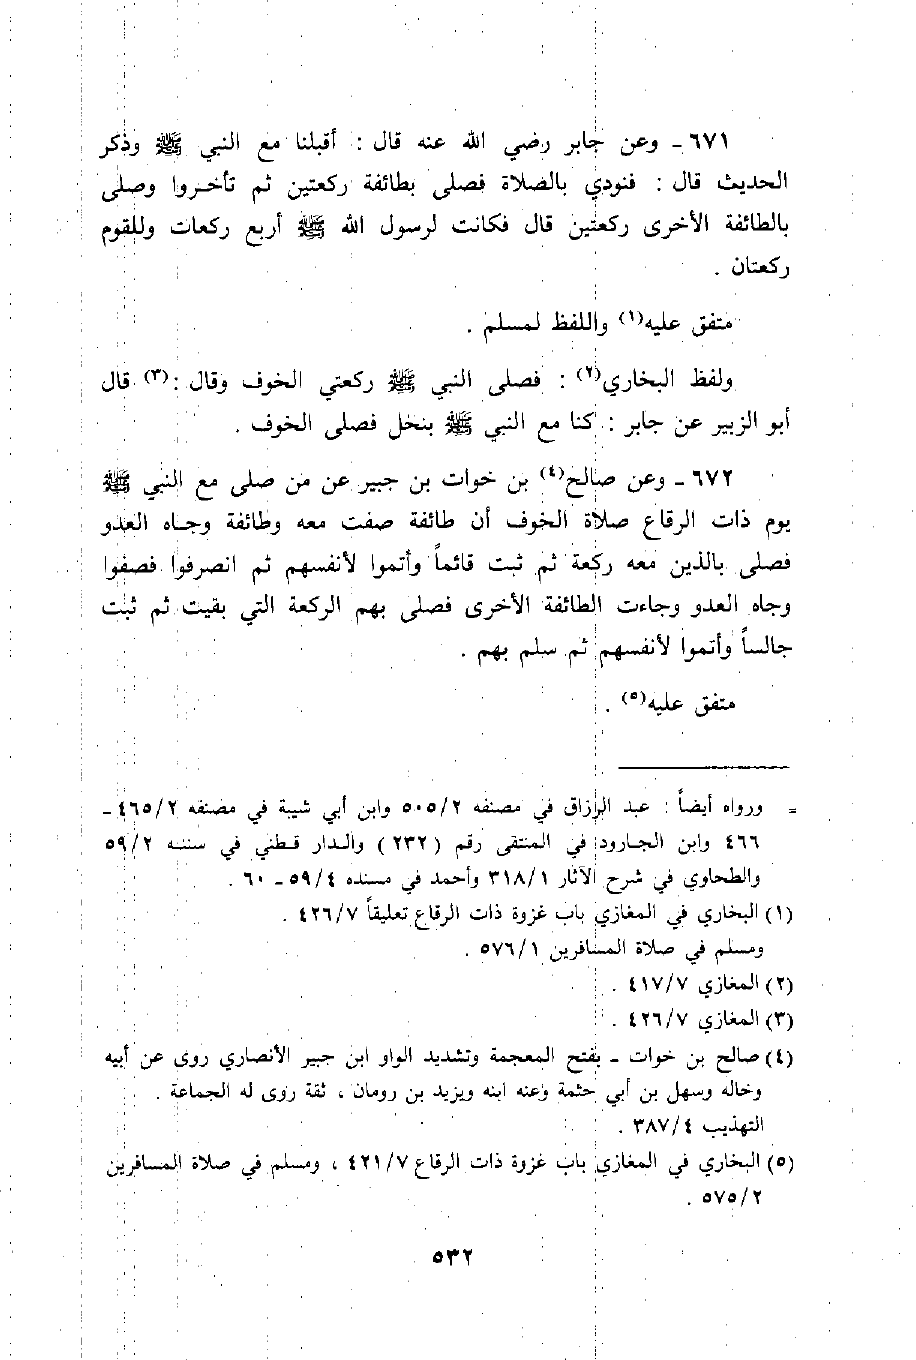 ٦٧١ - وعن جابر رضي الله عنه قال : أقبلنا مع النبي ﷺ وذكر
الحديث قال : فنودي بالصلاة فصلى بطائفة ركعتين ثم تأخروا وصلى
بالطائفة الأخرى ركعتين قال فكانت لرسول الله ﷺ أربع ركعات وللقوم
ركعتان .
متفق عليه(١) واللفظ لمسلم .
ولفظ البخاري(٢) : فصلى النبي ﷺ ركعتي الخوف وقال :(٣) قال
أبو الزبير عن جابر : كنا مع النبي ﷺ بنخل فصلى الخوف .
٦٧٢ - وعن صالح(٤) بن خوات بن جبير عن من صلى مع النبي ﷺ
يوم ذات الرقاع صلاة الخوف أن طائفة صفت معه وطائفة وجاه العدو
فصلى بالذين معه ركعة ثم ثبت قائماً وأتموا لأنفسهم ثم انصرفوا فصفوا
وجاه العدو وجاءت الطائفة الأخرى فصلى بهم الركعة التي بقيت ثم ثبت
جالساً وأتموا لأنفسهم ثم سلم بهم .
متفق عليه(٥) .
= ورواه أيضاً : عبد الرزاق في مصنفه ٥٠٥/٢ وابن أبي شيبة في مصنفه ٤٦٥/٢ -
٤٦٦ وابن الجارود في المنتقى رقم (٢٣٢) والدار قطني في سننه ٥٩/٢
والطحاوي في شرح الآثار ٣١٨/١ وأحمد في مسنده ٥٩/٤ - ٦٠ .
(١) البخاري في المغازي باب غزوة ذات الرقاع تعليقاً ٤٢٦/٧ .
ومسلم في صلاة المسافرين ٥٧٦/١ .
(٢) المغازي ٤١٧/٧ .
(٣) المغازي ٤٢٦/٧ .
(٤) صالح بن خوات - بفتح المعجمة وتشديد الواو ابن جبير الأنصاري روى عن أبيه
وخاله وسهل بن أبي حثمة وعنه ابنه ويزيد بن رومان ، ثقة روى له الجماعة .
التهذيب ٣٨٧/٤ .
(٥) البخاري في المغازي باب غزوة ذات الرقاع ٤٢١/٧ ، ومسلم في صلاة المسافرين
٥٧٥/٢ .
٥٣٢